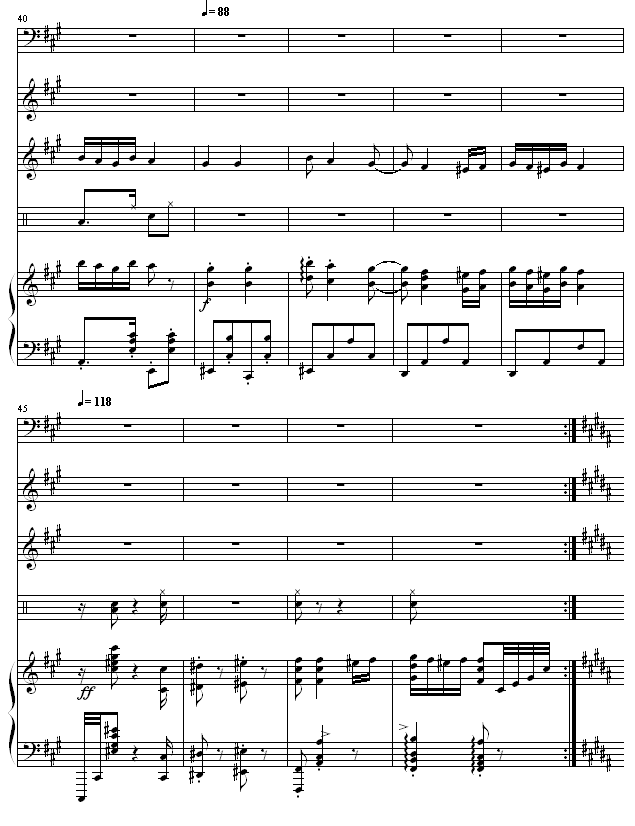 40
♩= 88
f
45
♩= 118
ff